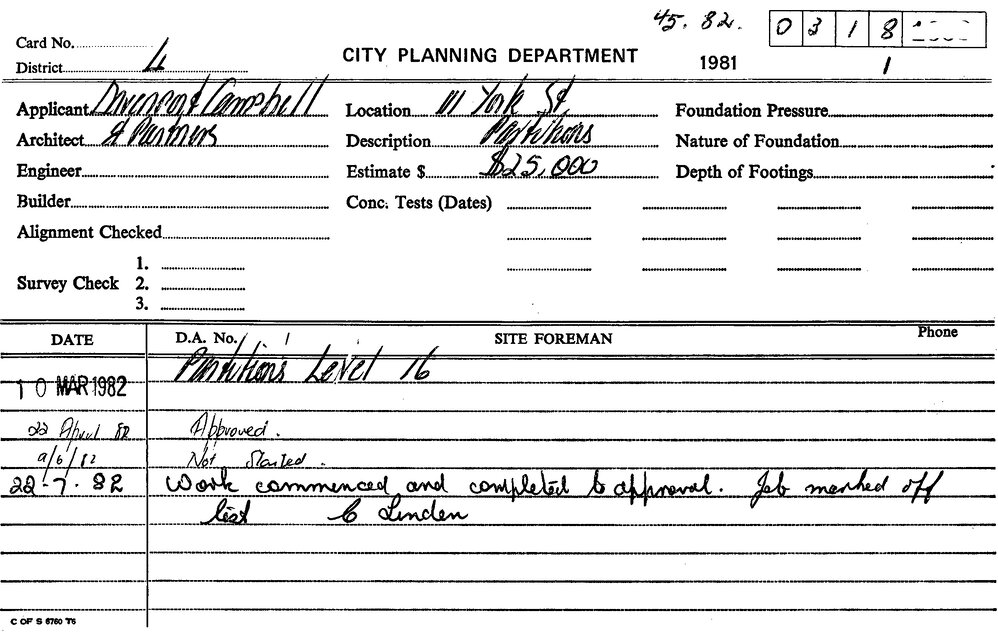 45. 82. 0 3 1 8
Card No.
District 4 CITY PLANNING DEPARTMENT 1981 1
Applicant Davenport Campbell Location 111 York St Foundation Pressure
Architect & Partners Description Partitions Nature of Foundation
Engineer Estimate $ $25,000 Depth of Footings
Builder Conc. Tests (Dates)
Alignment Checked
1.
Survey Check 2.
3.
DATE D.A. No. SITE FOREMAN Phone
Partitions Level 16
10 MAR 1982
22 April 82 Approved.
9/6/82 Not Started.
22-7-82 Work commenced and completed to approval. Job marked off
list C Linden
C OF S 6760 T6